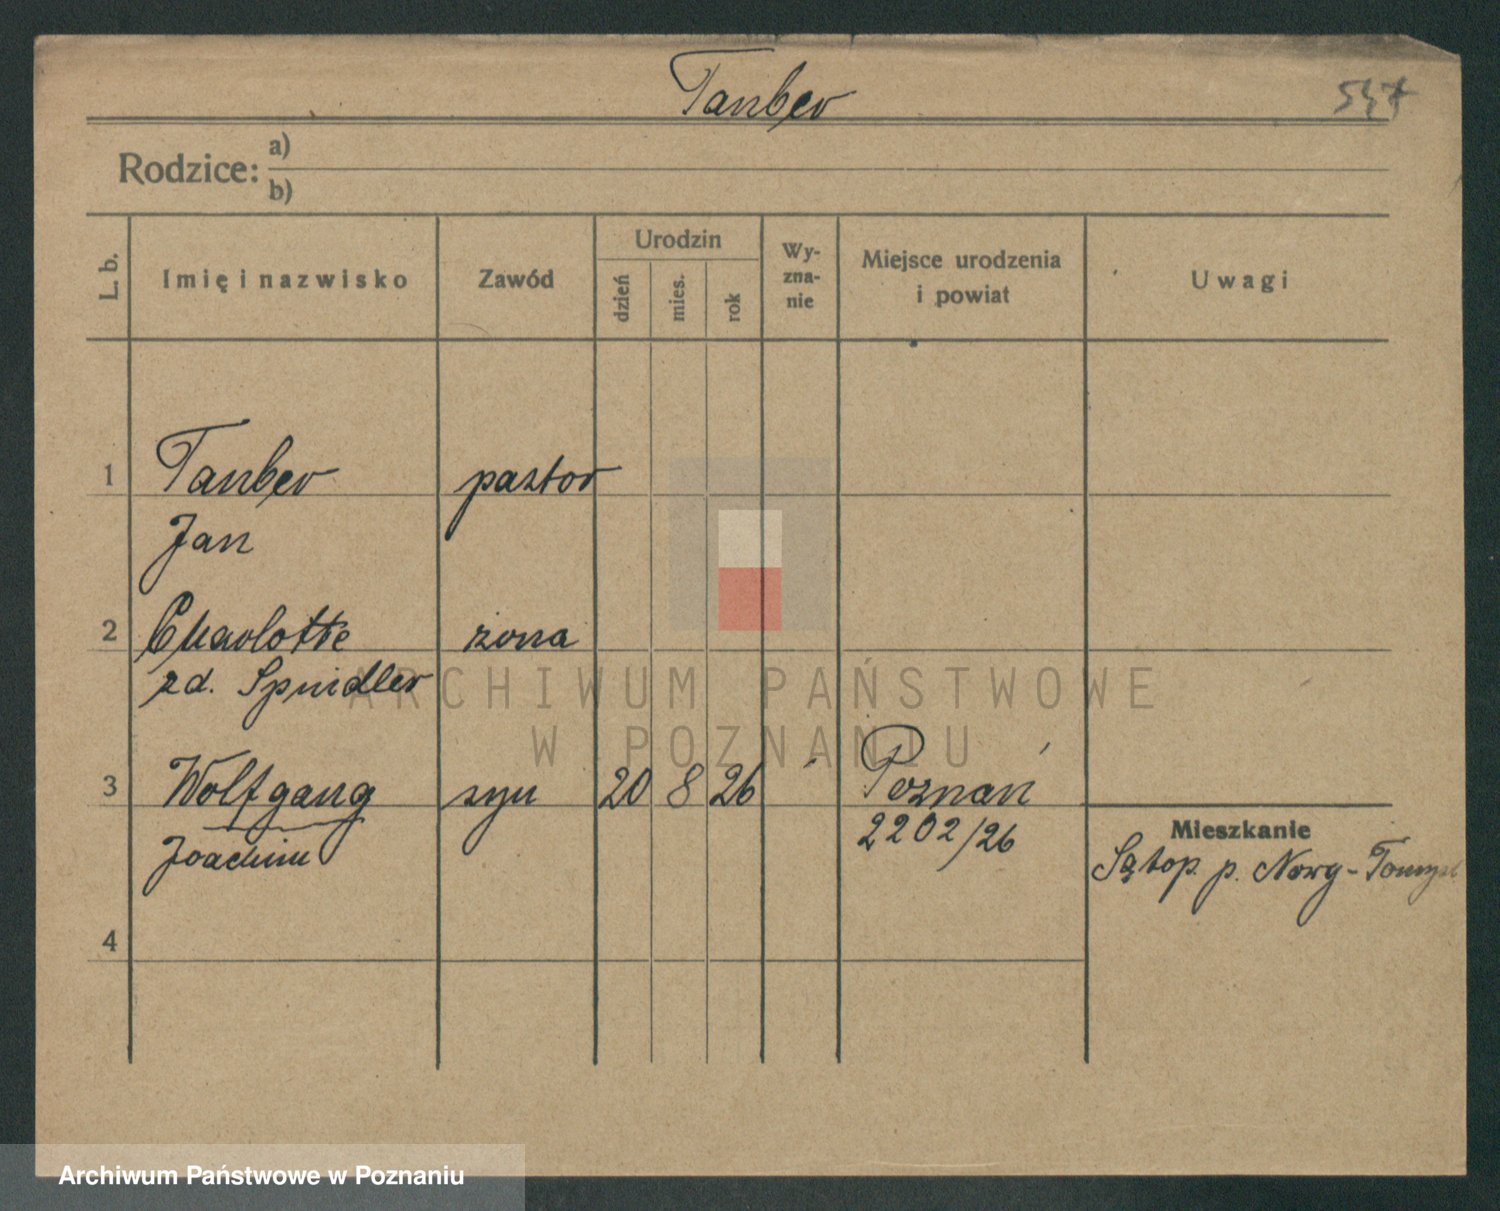 Tauber
547
Rodzice: a)
b)
L. b.
Imię i nazwisko
Zawód
Urodzin
dzień
mies.
rok
Wy-
zna-
nie
Miejsce urodzenia
i powiat
Uwagi
1 Tauber pastor
Jan
2 Charlotte żona
zd. Spindler
3 Wolfgang syn 20 8 26 Poznań
Joachim 2202/26
Mieszkanie
Sątop. p. Nowy-Tomyśl
4
ARCHIWUM PAŃSTWOWE
W POZNANIU
Archiwum Państwowe w Poznaniu